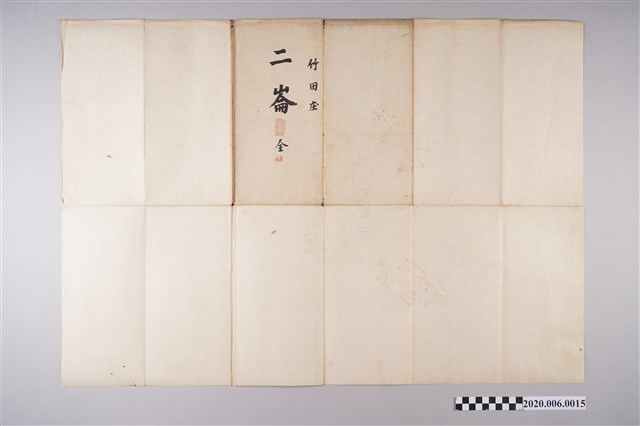 竹田庄
二崙
全
2020.006.0015